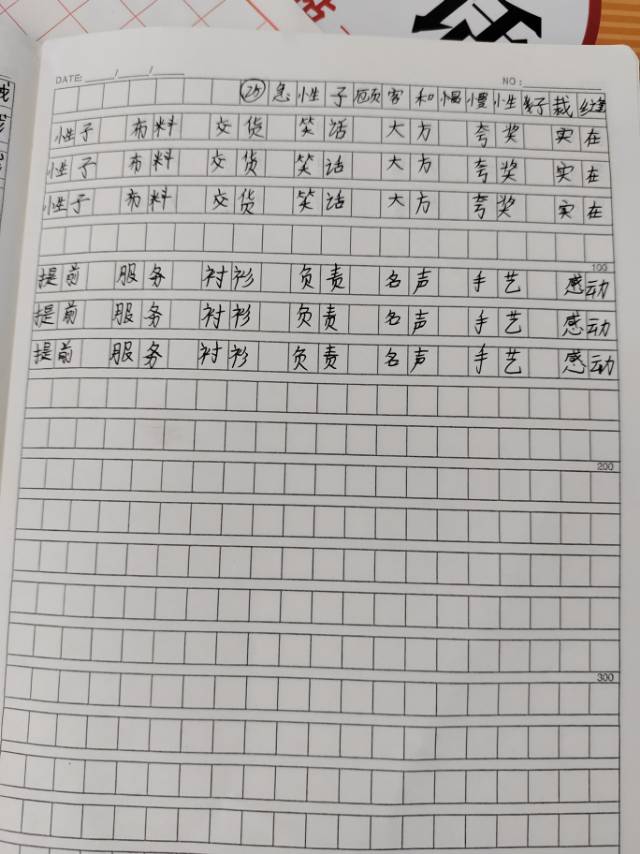 DATE: ___/___/___ NO:
㉕急性子顾客和慢慢性子裁缝
性子 布料 交货 笑话 大方 夸奖 实在
性子 布料 交货 笑话 大方 夸奖 实在
性子 布料 交货 笑话 大方 夸奖 实在
100
提前 服务 衬衫 负责 名声 手艺 感动
提前 服务 衬衫 负责 名声 手艺 感动
提前 服务 衬衫 负责 名声 手艺 感动
200
300